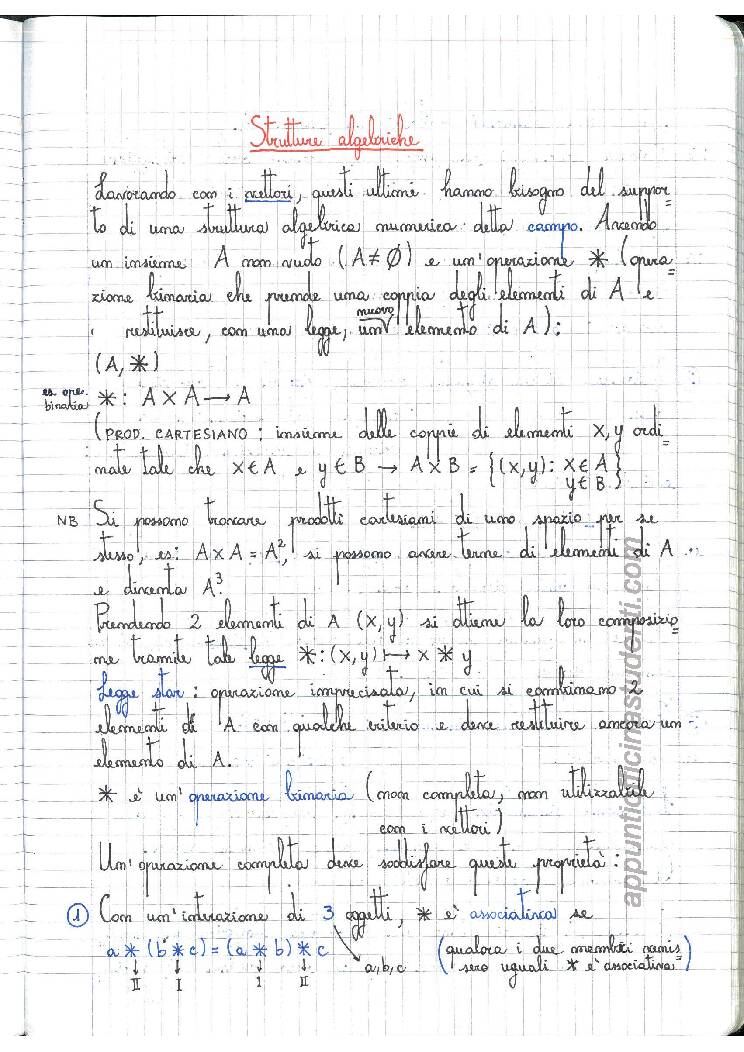 Strutture algebriche
Lavorando con i vettori, questi ultimi hanno bisogno del suppor=
to di una struttura algebrica numerica detta campo. Avendo
un insieme A non vuoto (A≠∅) e un'operazione * (opera=
zione binaria che prende una coppia degli elementi di A e
restituisce, con una legge, un nuovo elemento di A):
(A, *)
es. ope. binaria *: A×A → A
(PROD. CARTESIANO: insieme delle coppie di elementi x, y ordi=
nate tale che x∈A e y∈B → A×B = {(x,y): x∈A
y∈B}
NB Si possono trovare prodotti cartesiani di uno spazio per se
stesso, es: A×A = A², si possono avere terne di elementi di A
e diventa A³.
Prendendo 2 elementi di A (x,y) si ottiene la loro composizio=
ne tramite tale legge *: (x,y) ↦ x * y
Legge star: operazione imprecisata, in cui si combinano 2
elementi di A con qualche criterio e deve restituire ancora un
elemento di A.
* è un'operazione binaria (non completa, non utilizzabile
con i vettori)
Un'operazione completa deve soddisfare queste proprietà:
1 Con un'interazione di 3 oggetti, * è associativa se
a * (b * c) = (a * b) * c a,b,c (qualora i due membri venis=
II I I II sero uguali * è associativa)
appuntiofficinastudenti.com